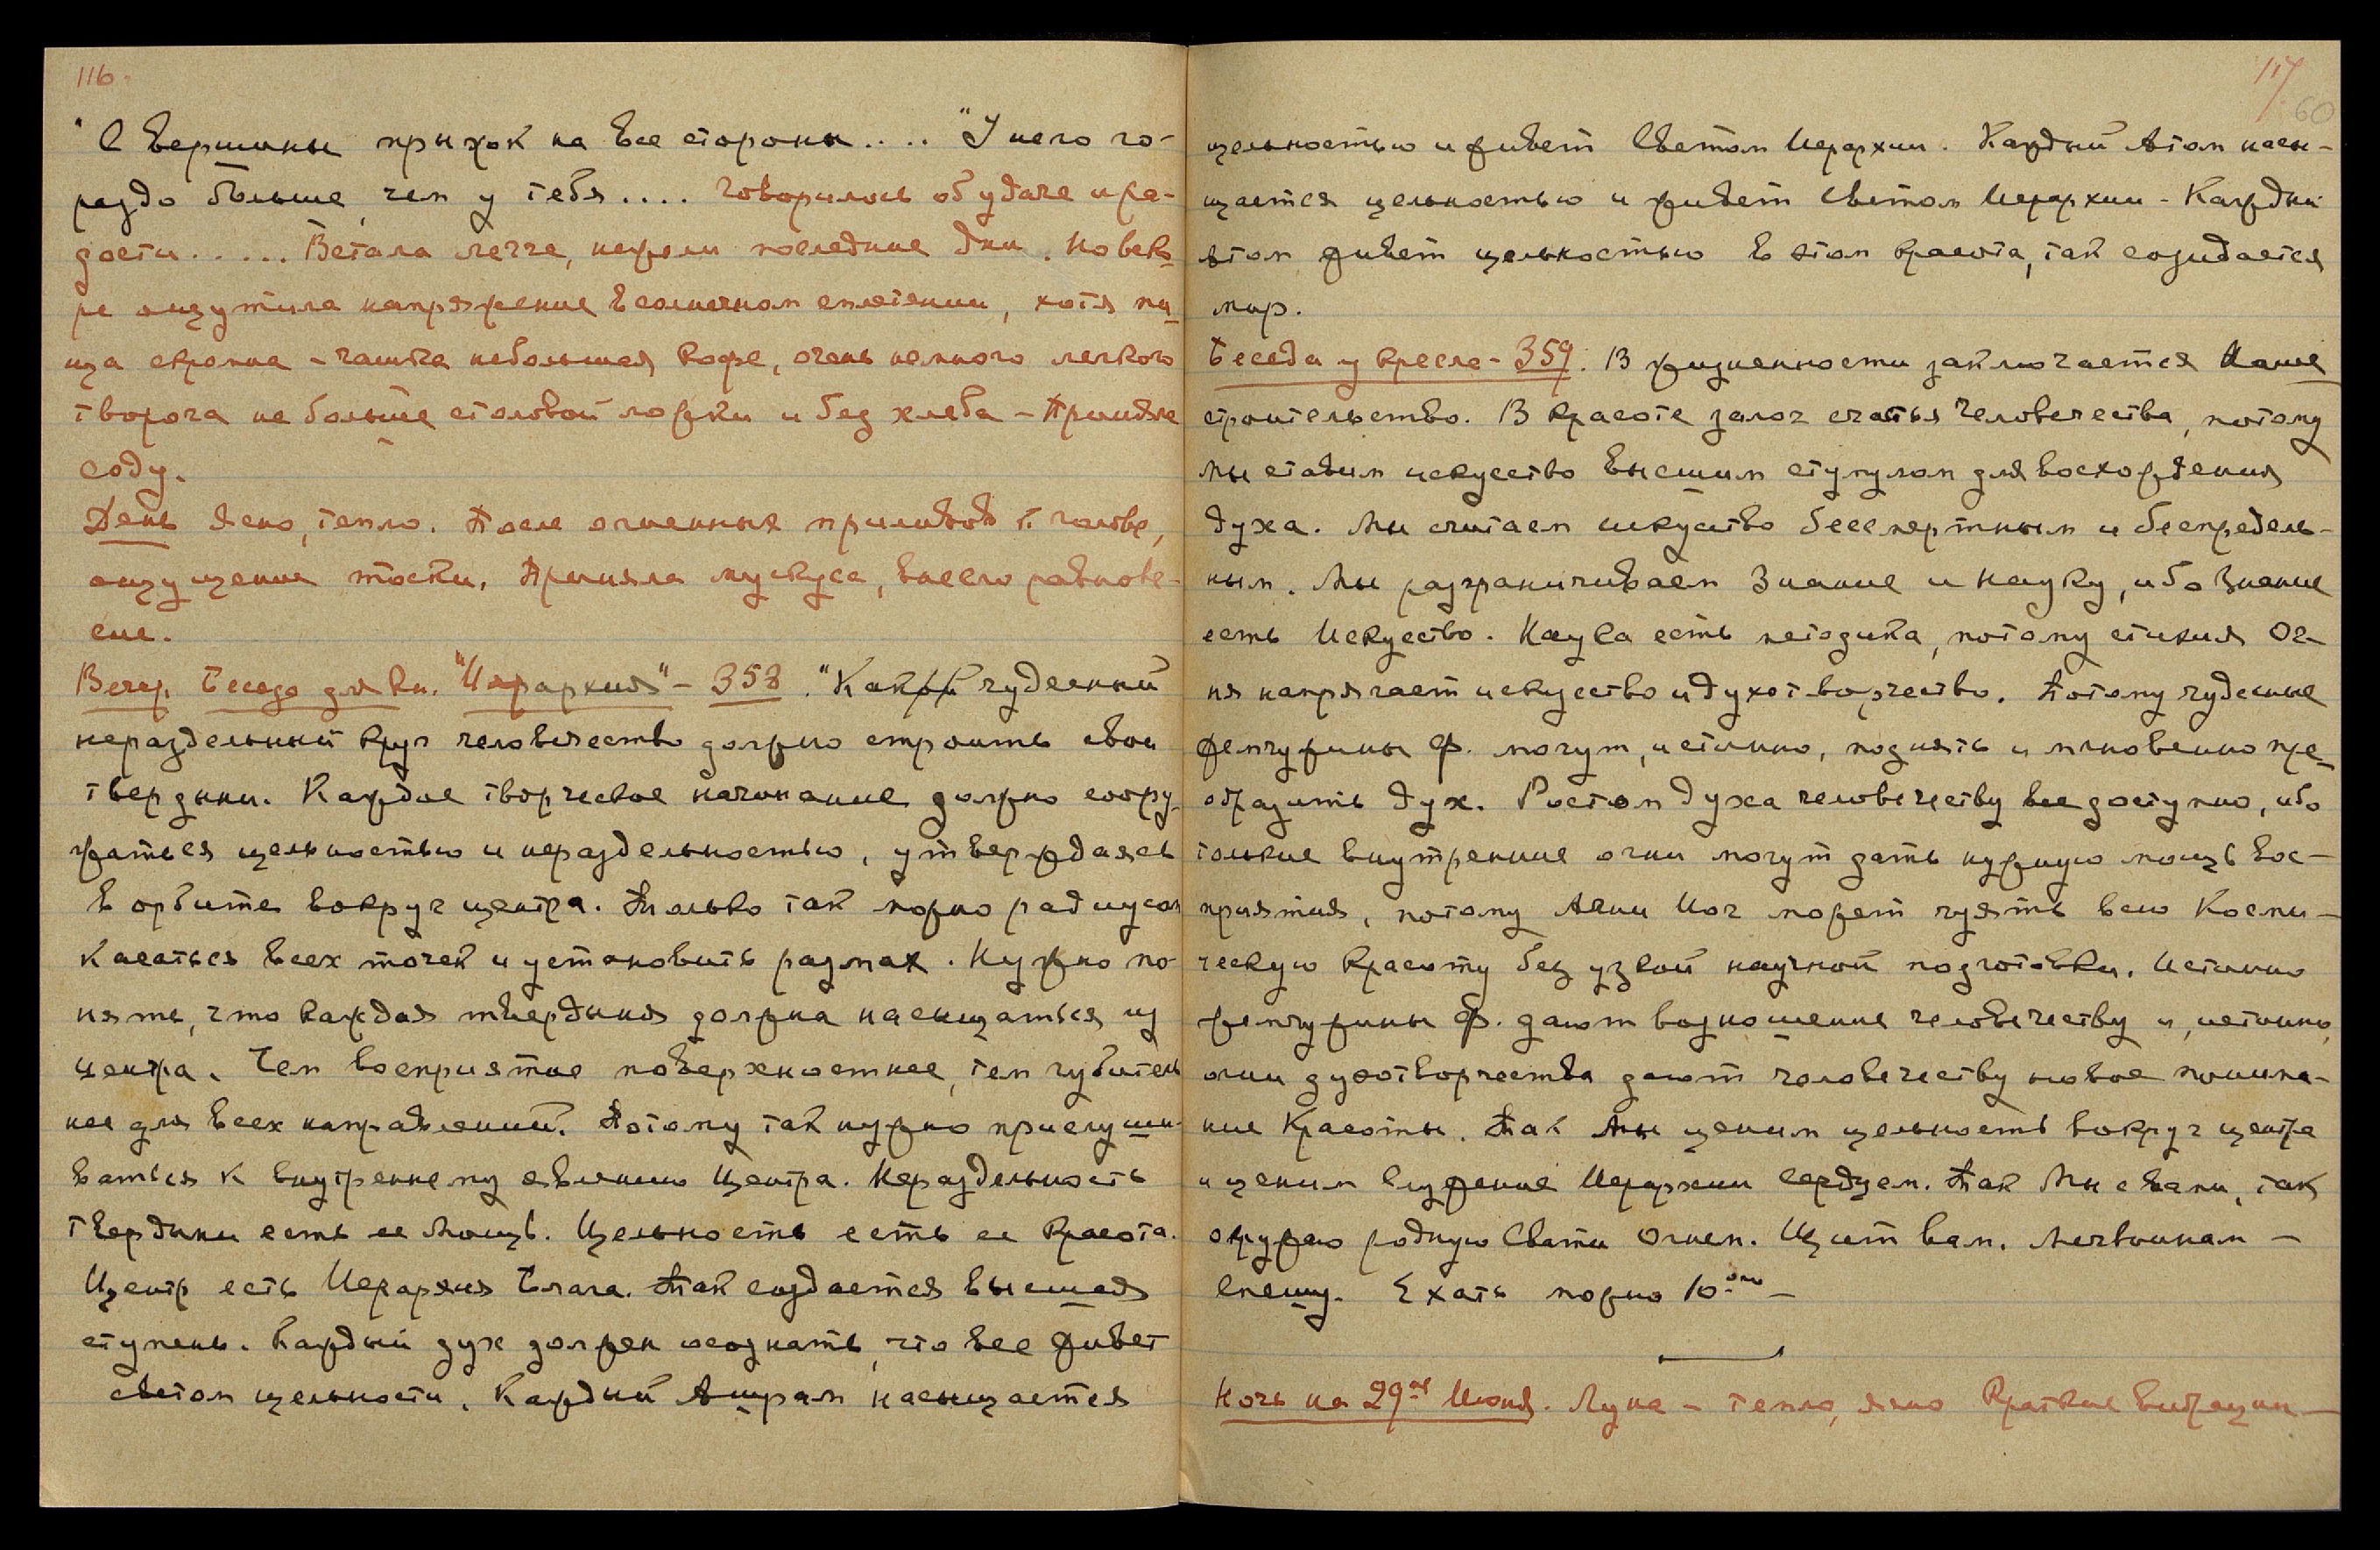 116.
"С вершины прыжок на все стороны.... "У него го-
раздо больше, чем у тебя.... Говорилось об удаче и ра-
дости..... Встала легче, нежели последние дни. Но вско
ре ощутила напряжение в солнечном сплетении, хотя пи
ща скромна - чашка небольшая кофе, очень немного легкого
творога не больше столовой ложки и без хлеба - Приняла
соду.
День ясно, тепло. После огненных приливов к голове,
ощущение тоски. Приняла мускуса, внесло равнове-
сие.
Вечер. Беседа для кн. "Иерархия" - 358. "Как чудесный
нераздельный круг человечество должно строить свои
твердыни. Каждое творческое начинание должно соору-
жаться цельностью и нераздельностью, утверждаясь
в орбите вокруг центра. Только так можно радиусом
касаться всех точек и установить размах. Нужно по-
нять, что каждая твердыня должна насыщаться из
центра. Чем восприятие поверхностнее, тем губитель
нее для всех направлений. Потому так нужно прислуши-
ваться к внутреннему явлению Центра. Нераздельность
твердыни есть ее Мощь. Цельность есть ее Красота.
Центр есть Иерархия Блага. Так создается высшая
ступень. Каждый дух должен осознать, что все живет
светом цельности. Каждый Ашрам насыщается
117
60
цельностью и живет Светом Иерархии. Каждый Атом насы-
щается цельностью и живет Светом Иерархии - Каждый
атом живет цельностью в этом красота, так созидается
мир.
Беседа у кресла - 359. В жизненности заключается Наше
строительство. В Красоте залог счастья Человечества, потому
Мы ставим искусство высшим стимулом для восхождения
духа. Мы считаем искусство бессмертным и беспредель-
ным. Мы разграничиваем Знание и Науку, ибо Знание
есть Искусство. Наука есть методика, потому стихия Ог-
ня напрягает искусство и духотворчество. Потому чудесные
жемчужины ф. могут, истинно, поднять и мгновенно пре
образить дух. Ростом духа человечеству все доступно, ибо
только внутренние огни могут дать нужную мощь вос-
приятия, потому Агни Иог может чуять всю Косми-
ческую Красоту без узкой научной подготовки. Истинно
жемчужины ф. дают возношение человечеству и, истинно,
огни духотворчества дают человечеству новое понима-
ние Красоты. Так Мы ценим цельность вокруг центра
и ценим служение Иерархии Сердцем. Так Мы с вами, так
окружаю родную Свати Огнем. Щит вам. Мечвоинам -
Спешу. Ехать можно 10-ого -
Ночь на 29ое Июня. Луна - тепло, ясно Краткие вибрации -